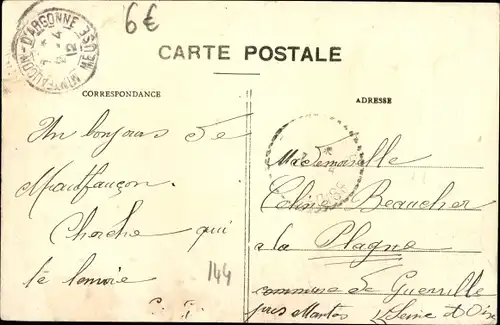 6€
MONTFAUCON-D'ARGONNE MEUSE
12
CARTE POSTALE
CORRESPONDANCE
ADRESSE
Un bonjour de
Montfaucon.
Cherche qui
te l'envoie
144
Mademoiselle
Celine Beaucher
a la Plagne
commune de Guerville
près Mantes Seine et Oise